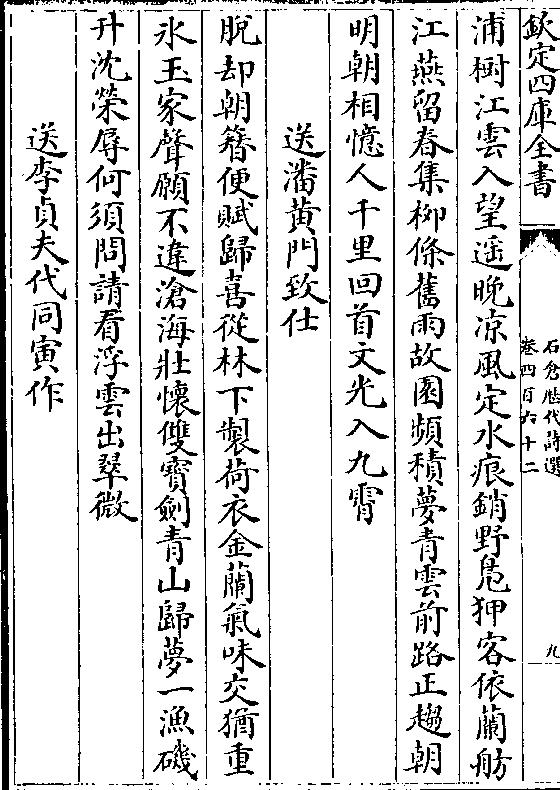 欽定四庫全書
石倉歷代詩選
卷四百六十二
九
浦樹江雲入望遥晚凉風定水痕銷野鳬狎客依蘭舫
江燕留春集柳條舊雨故園頻積夢青雲前路正趨朝
明朝相憶人千里回首文光入九霄
送潘黄門致仕
脱却朝簪便賦歸喜從林下製荷衣金蘭氣味交猶重
氷玉家聲願不違滄海壯懷雙寳劍青山歸夢一漁磯
升沈榮辱何須問請看浮雲出翠微
送李貞夫代同寅作